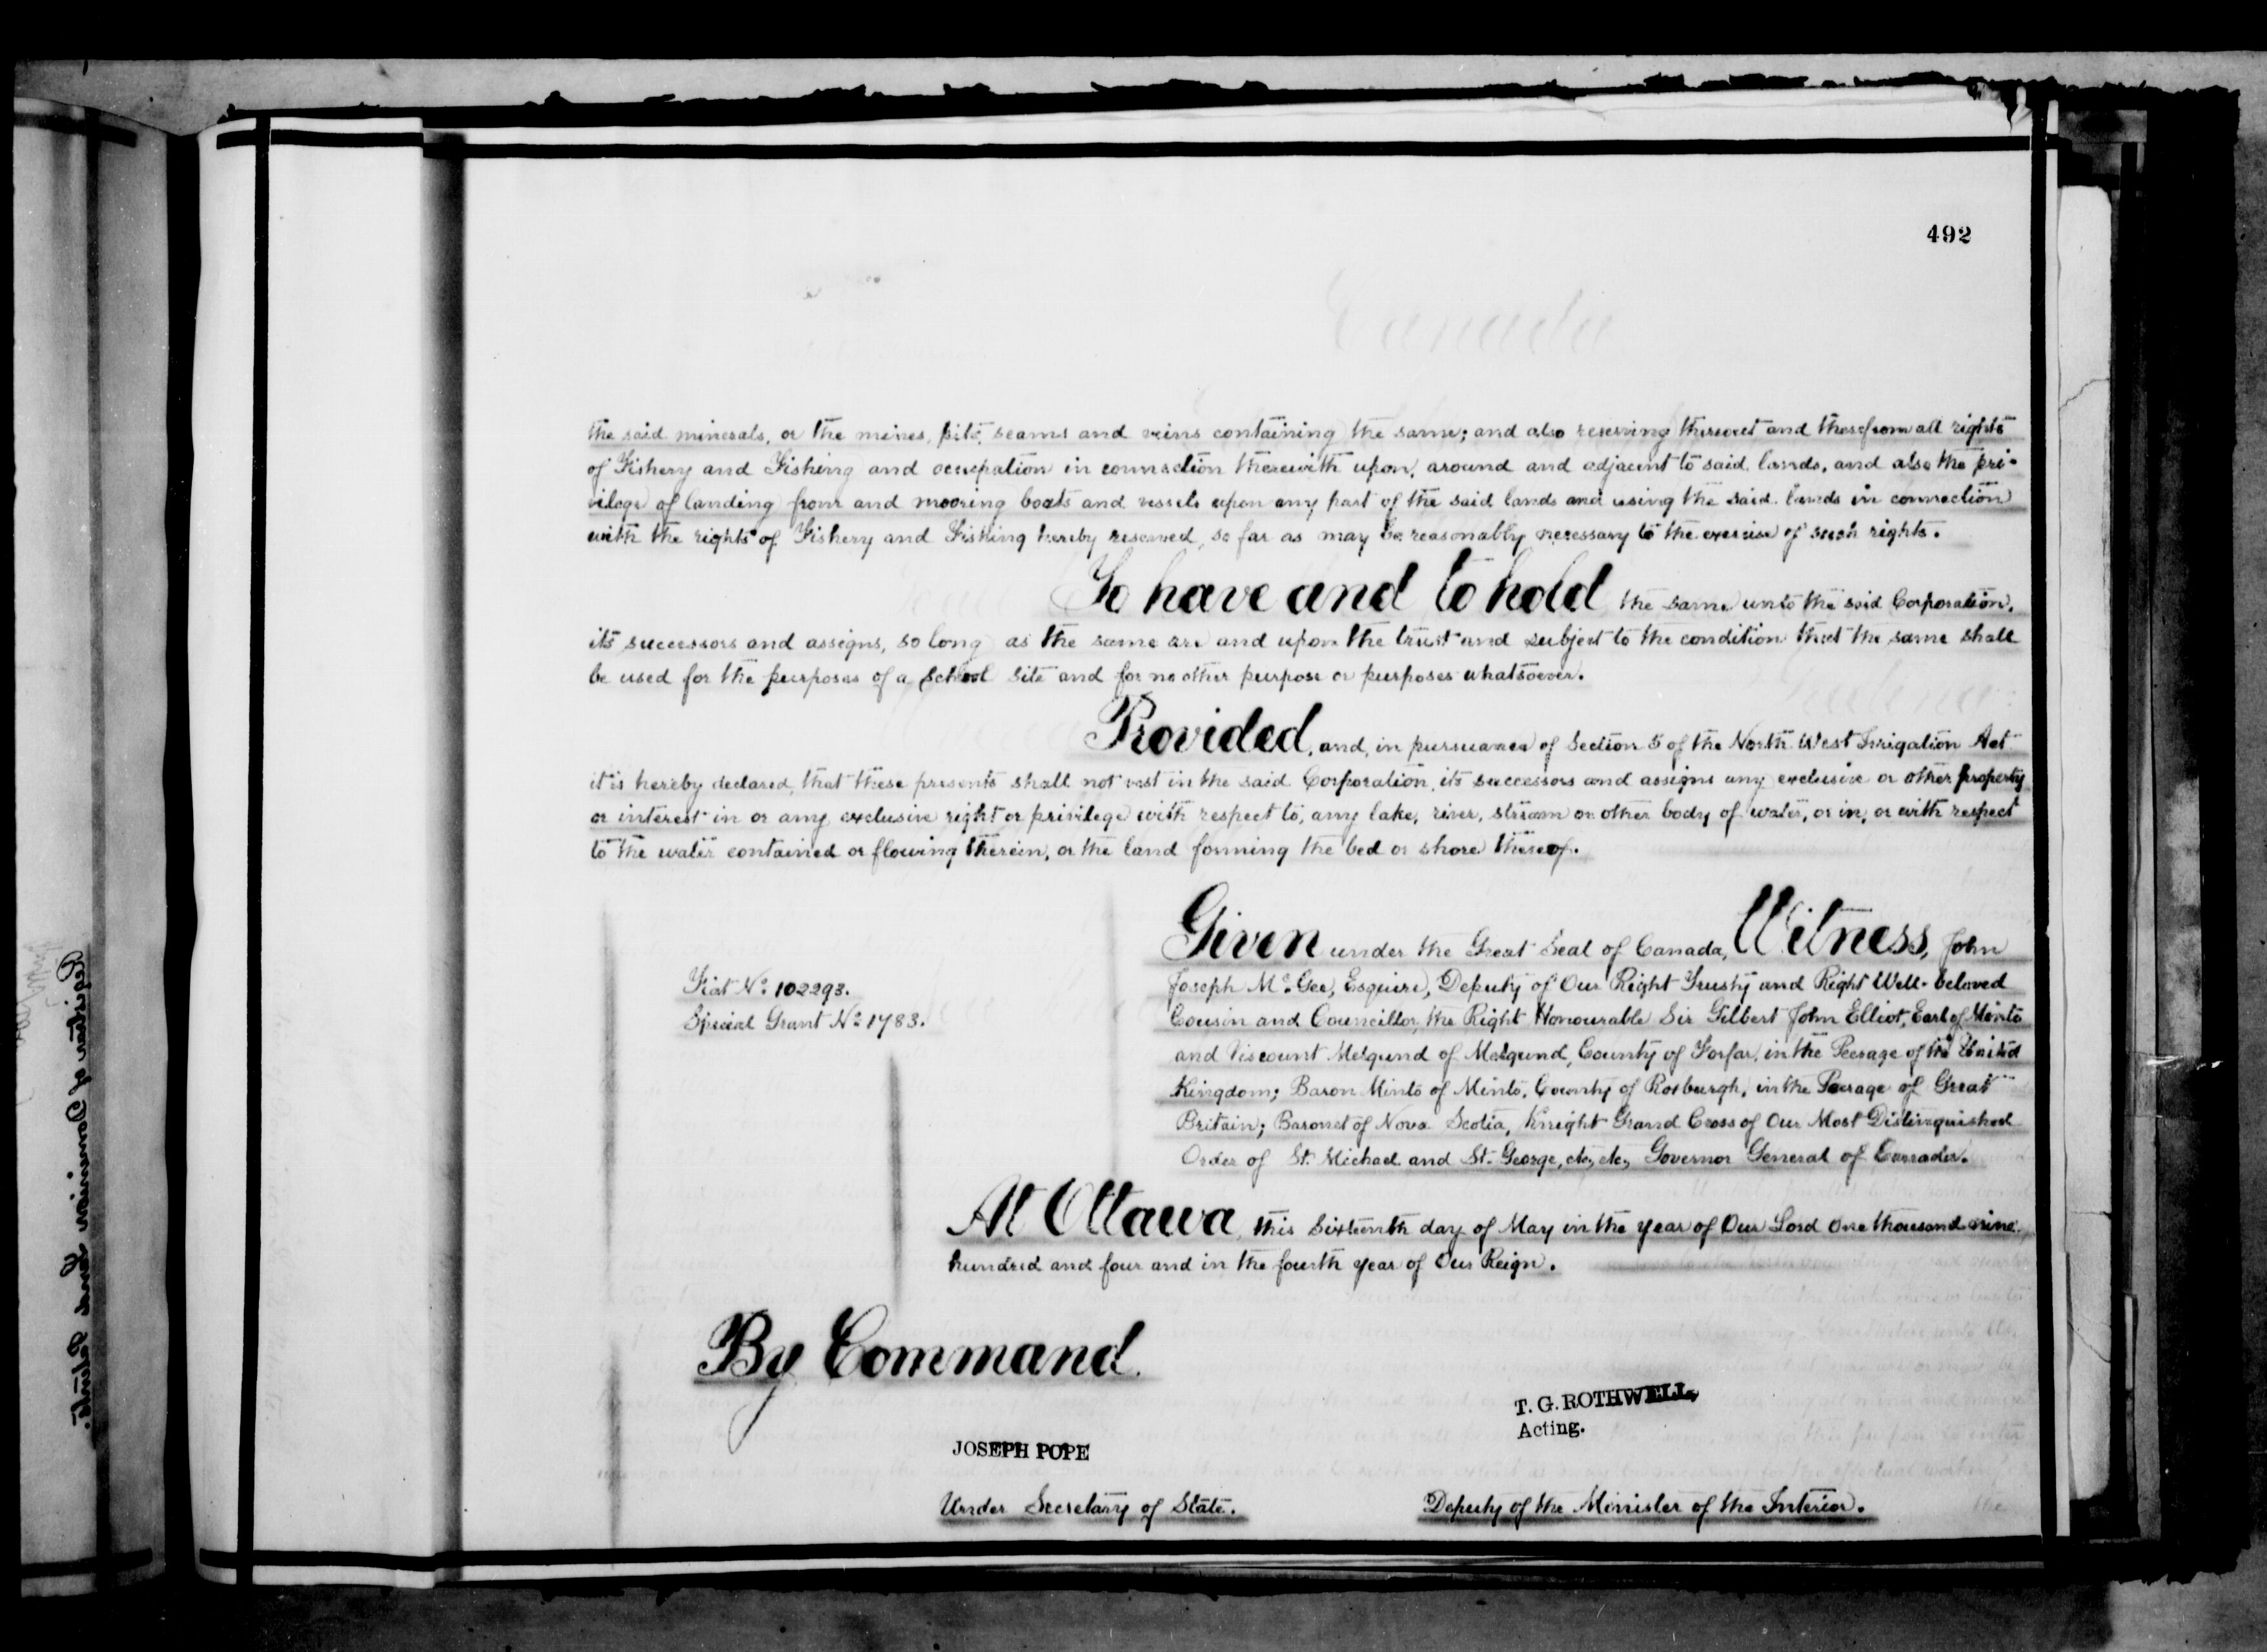 492
the said minerals, or the mines, pits, seams and veins containing the same; and also reserving thereout and therefrom all rights
of Fishery and Fishing and occupation in connection therewith upon, around and adjacent to said lands, and also the pri-
vilege of landing from and mooring boats and vessels upon any part of the said lands and using the said lands in connection
with the rights of Fishery and Fishing hereby reserved, so far as may be reasonably necessary to the exercise of such rights.
To have and to hold the same unto the said Corporation,
its successors and assigns, so long as the same are and upon the trust and subject to the condition that the same shall
be used for the purposes of a school site and for no other purpose or purposes whatsoever.
Provided, and, in pursuance of Section 5 of the North West Irrigation Act
it is hereby declared, that these presents shall not vest in the said Corporation, its successors and assigns any exclusive or other property
or interest in or any exclusive right or privilege with respect to, any lake, river, stream or other body of water, or in, or with respect
to the water contained or flowing therein, or the land forming the bed or shore thereof.
Given under the Great Seal of Canada, Witness, John
Joseph McGee, Esquire, Deputy of Our Right Trusty and Right Well-beloved
Cousin and Councillor, the Right Honourable Sir Gilbert John Elliot, Earl of Minto
and Viscount Melgund of Melgund, County of Forfar, in the Peerage of the United
Kingdom; Baron Minto of Minto, County of Roxburgh, in the Peerage of Great
Britain; Baronet of Nova Scotia, Knight Grand Cross of Our Most Distinguished
Order of St. Michael and St. George, etc, etc, Governor General of Canada.
Fiat No. 102293.
Special Grant No. 1783.
At Ottawa, this Sixteenth day of May in the year of Our Lord One thousand nine
hundred and four and in the fourth year of Our Reign.
By Command.
T. G. ROTHWELL,
Acting.
JOSEPH POPE
Under Secretary of State.
Deputy of the Minister of the Interior.
Registrar of Dominion Land Patents.